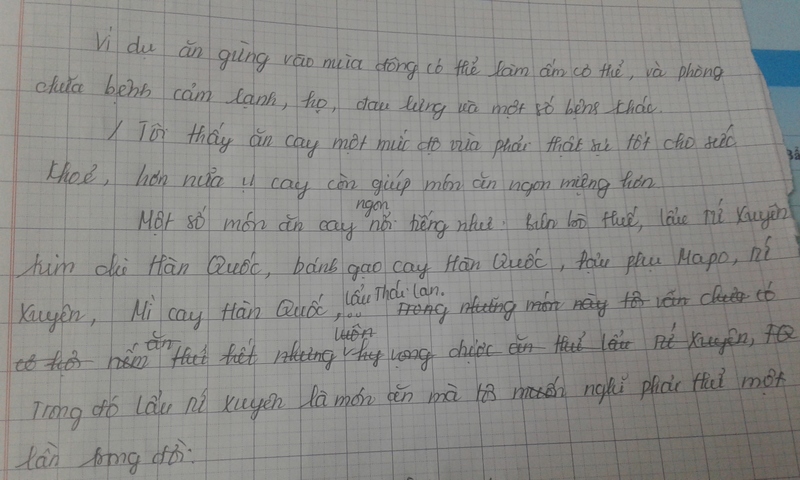 Ví dụ ăn gừng vào mùa đông có thể làm ấm cơ thể, và phòng
chữa bệnh cảm lạnh, ho, đau lưng và một số bệnh khác.
Tôi thấy ăn cay một mức độ vừa phải thật sự tốt cho sức
khoẻ, hơn nữa vị cay còn giúp món ăn ngon miệng hơn
ngon
Một số món ăn cay nổi tiếng như: bún bò Huế, lẩu Tứ Xuyên
kim chi Hàn Quốc, bánh gạo cay Hàn Quốc, đậu phụ Mapo,
Xuyên, Mì cay Hàn Quốc, lẩu Thái Lan.
... Trong những món này tô vẫn chưa có
ăn luôn
nếm thử hết nhưng hy vọng được ăn thử lẩu Tứ Xuyên,
Trong đó lẩu Tứ Xuyên là món ăn mà tô muốn nghĩ phải thử một
lần trong đời.